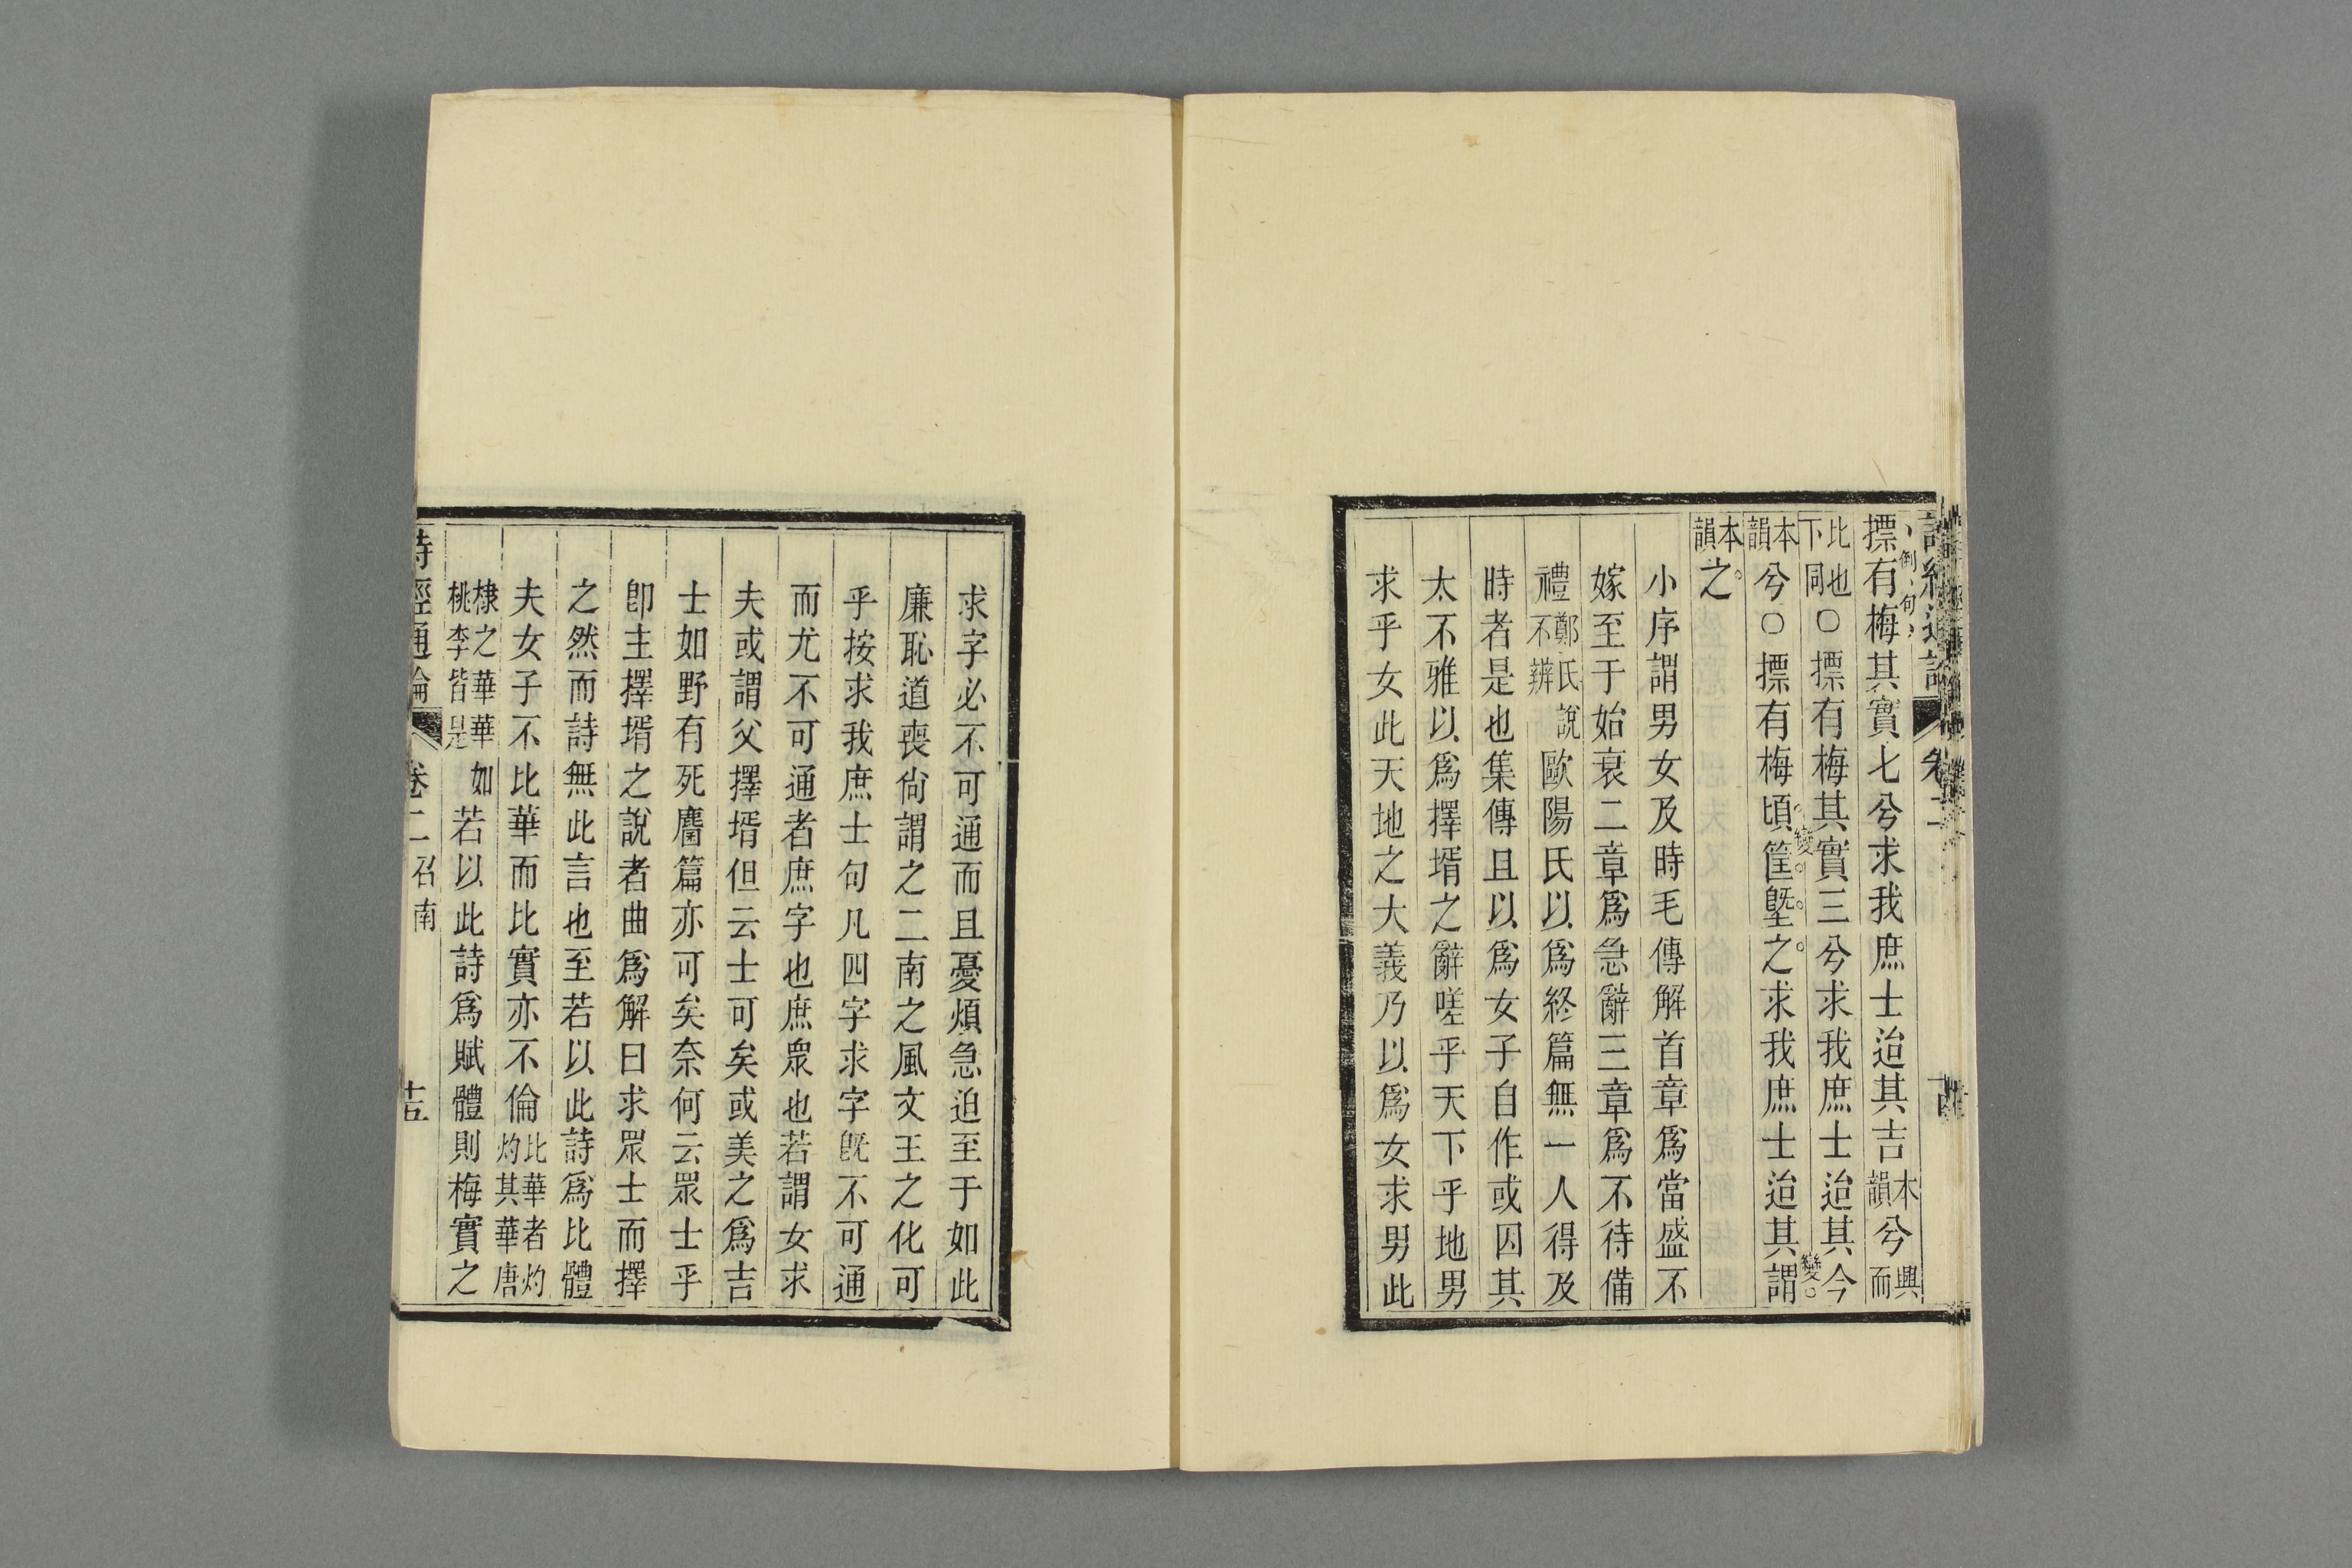 詩經通論 卷二
摽有梅其實七兮求我庶士迨其吉本韻兮興而
倒句
比也下同○摽有梅其實三兮求我庶士迨其今
變
本韻兮○摽有梅頃筐塈之求我庶士迨其謂
變
本韻之
小序謂男女及時毛傳解首章爲當盛不
嫁至于始衰二章爲急辭三章爲不待備
禮鄭氏說不辨歐陽氏以爲終篇無一人得及
時者是也集傳且以爲女子自作或因其
太不雅以爲擇壻之辭嗟乎天下乎地男
求乎女此天地之大義乃以爲女求男此
求字必不可通而且憂煩急迫至于如此
廉恥道喪尙謂之二南之風文王之化可
乎按求我庶士句凡四字求字旣不可通
而尤不可通者庶字也庶眾也若謂女求
夫或謂父擇壻但云士可矣或美之爲吉
士如野有死麕篇亦可矣奈何云眾士乎
卽主擇壻之說者曲爲解曰求眾士而擇
之然而詩無此言也至若以此詩爲比體
夫女子不比華而比實亦不倫比華者灼灼其華唐
棣之華華如桃李皆是若以此詩爲賦體則梅實之
詩經通論 卷二召南 十五